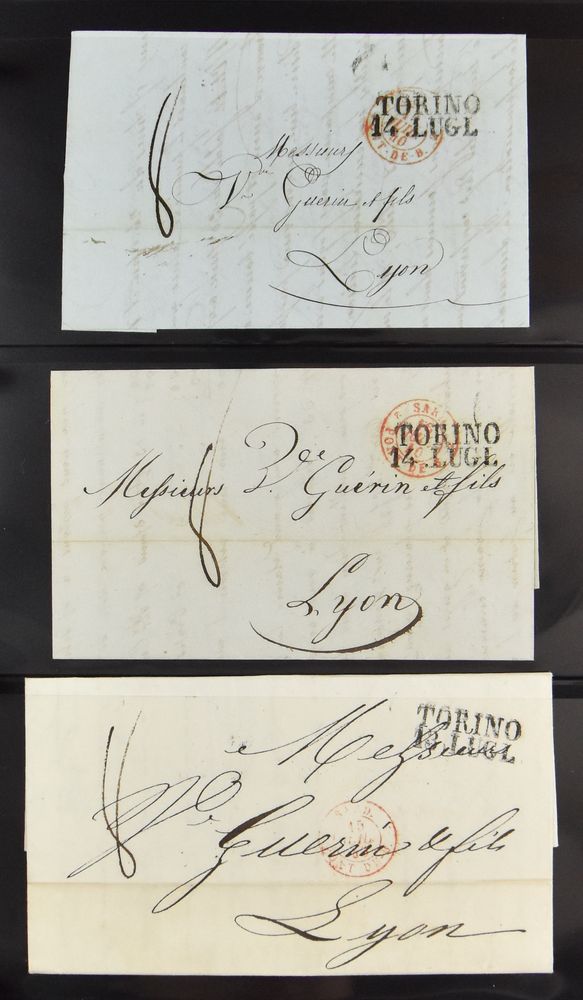 TORINO
14 LUGL
PT-DE-B
8
Messieurs
Vve Guerin et fils
Lyon
SAR
TORINO
14 LUGL
8
Messieurs Vve Guérin et fils
Lyon
TORINO
13 LUGL
8
Messieurs
Vve Guerin & fils
Lyon